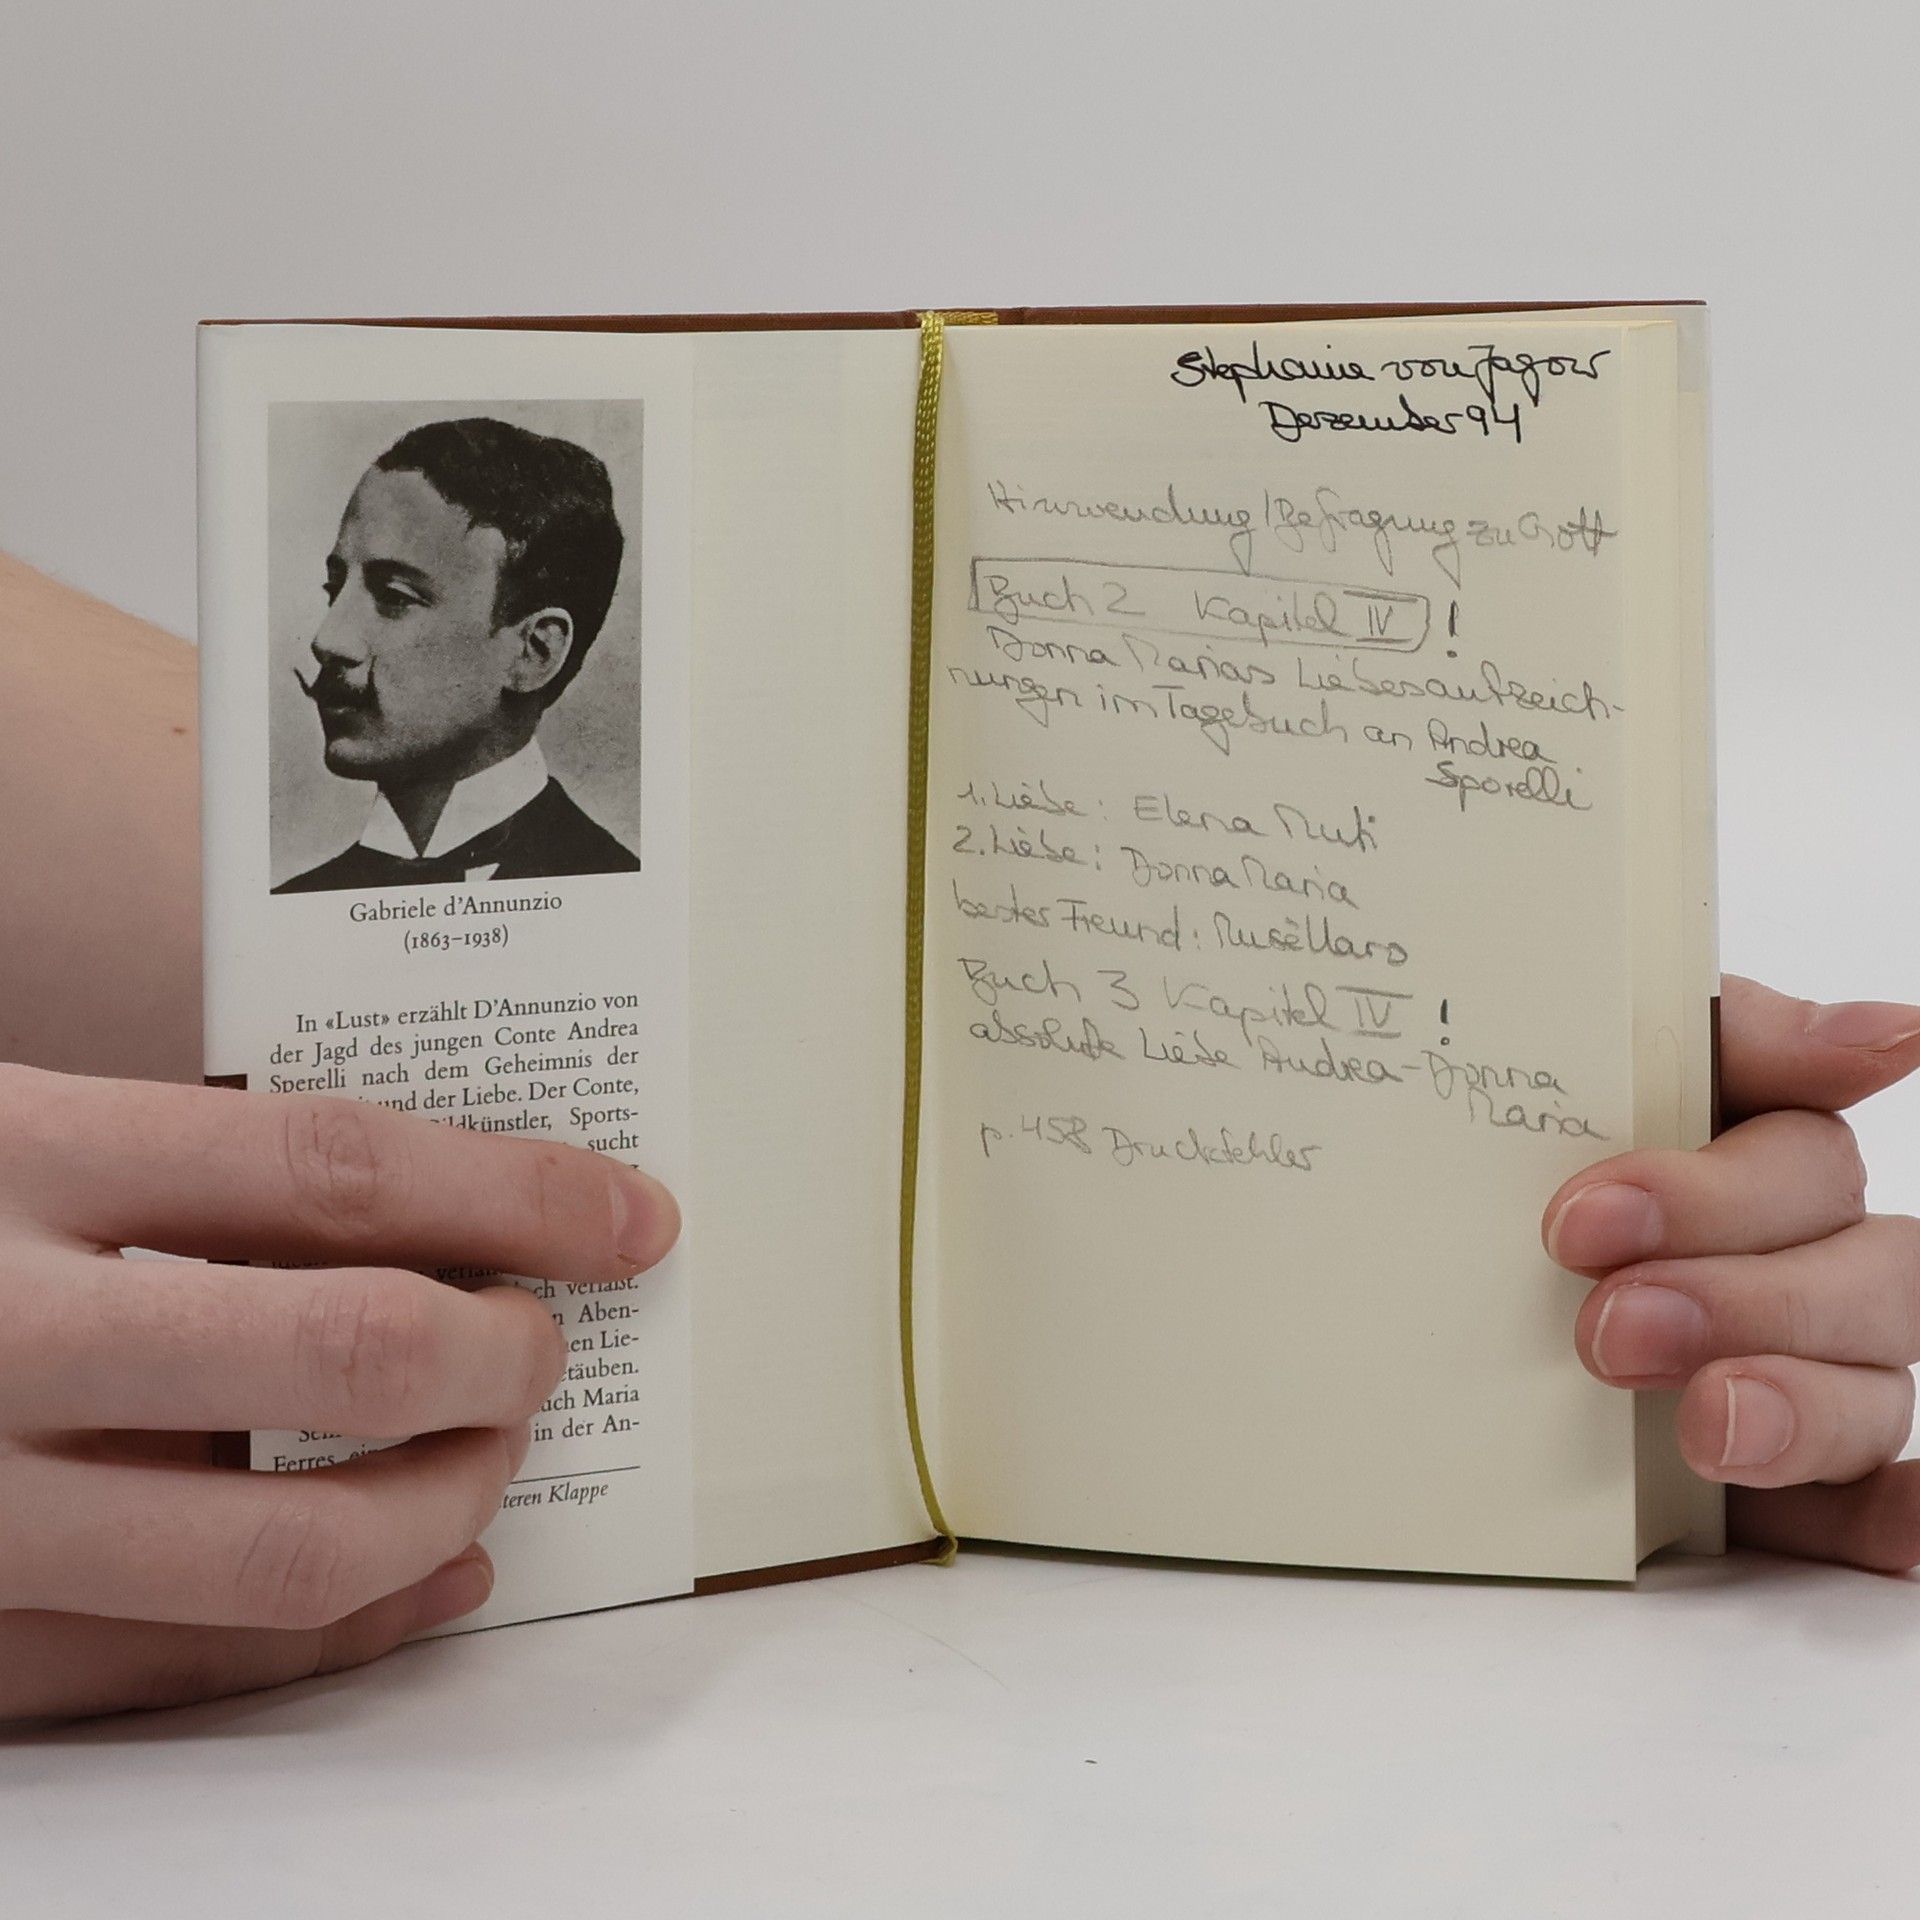 Gabriele d'Annunzio
(1863–1938)
In «Lust» erzählt D'Annunzio von
der Jagd des jungen Conte Andrea
Sperelli nach dem Geheimnis der
und der Liebe. Der Conte,
ildkünstler, Sports-
sucht
ch verfaßt.
n Aben-
en Lie-
täuben.
uch Maria
in der An-
Ferres
teren Klappe
Stephanie von Jagow
Dezember 94
Hinwendung/Befragung zu Gott
Buch 2 Kapitel IV !
Donna Marias Liebesaufzeich-
nungen im Tagebuch an Andrea
Sporelli
1. Liebe: Elena Muti
2. Liebe: Donna Maria
bester Freund: Musèllaro
Buch 3 Kapitel IV !
absolute Liebe Andrea-Donna
Maria
p. 458 Druckfehler